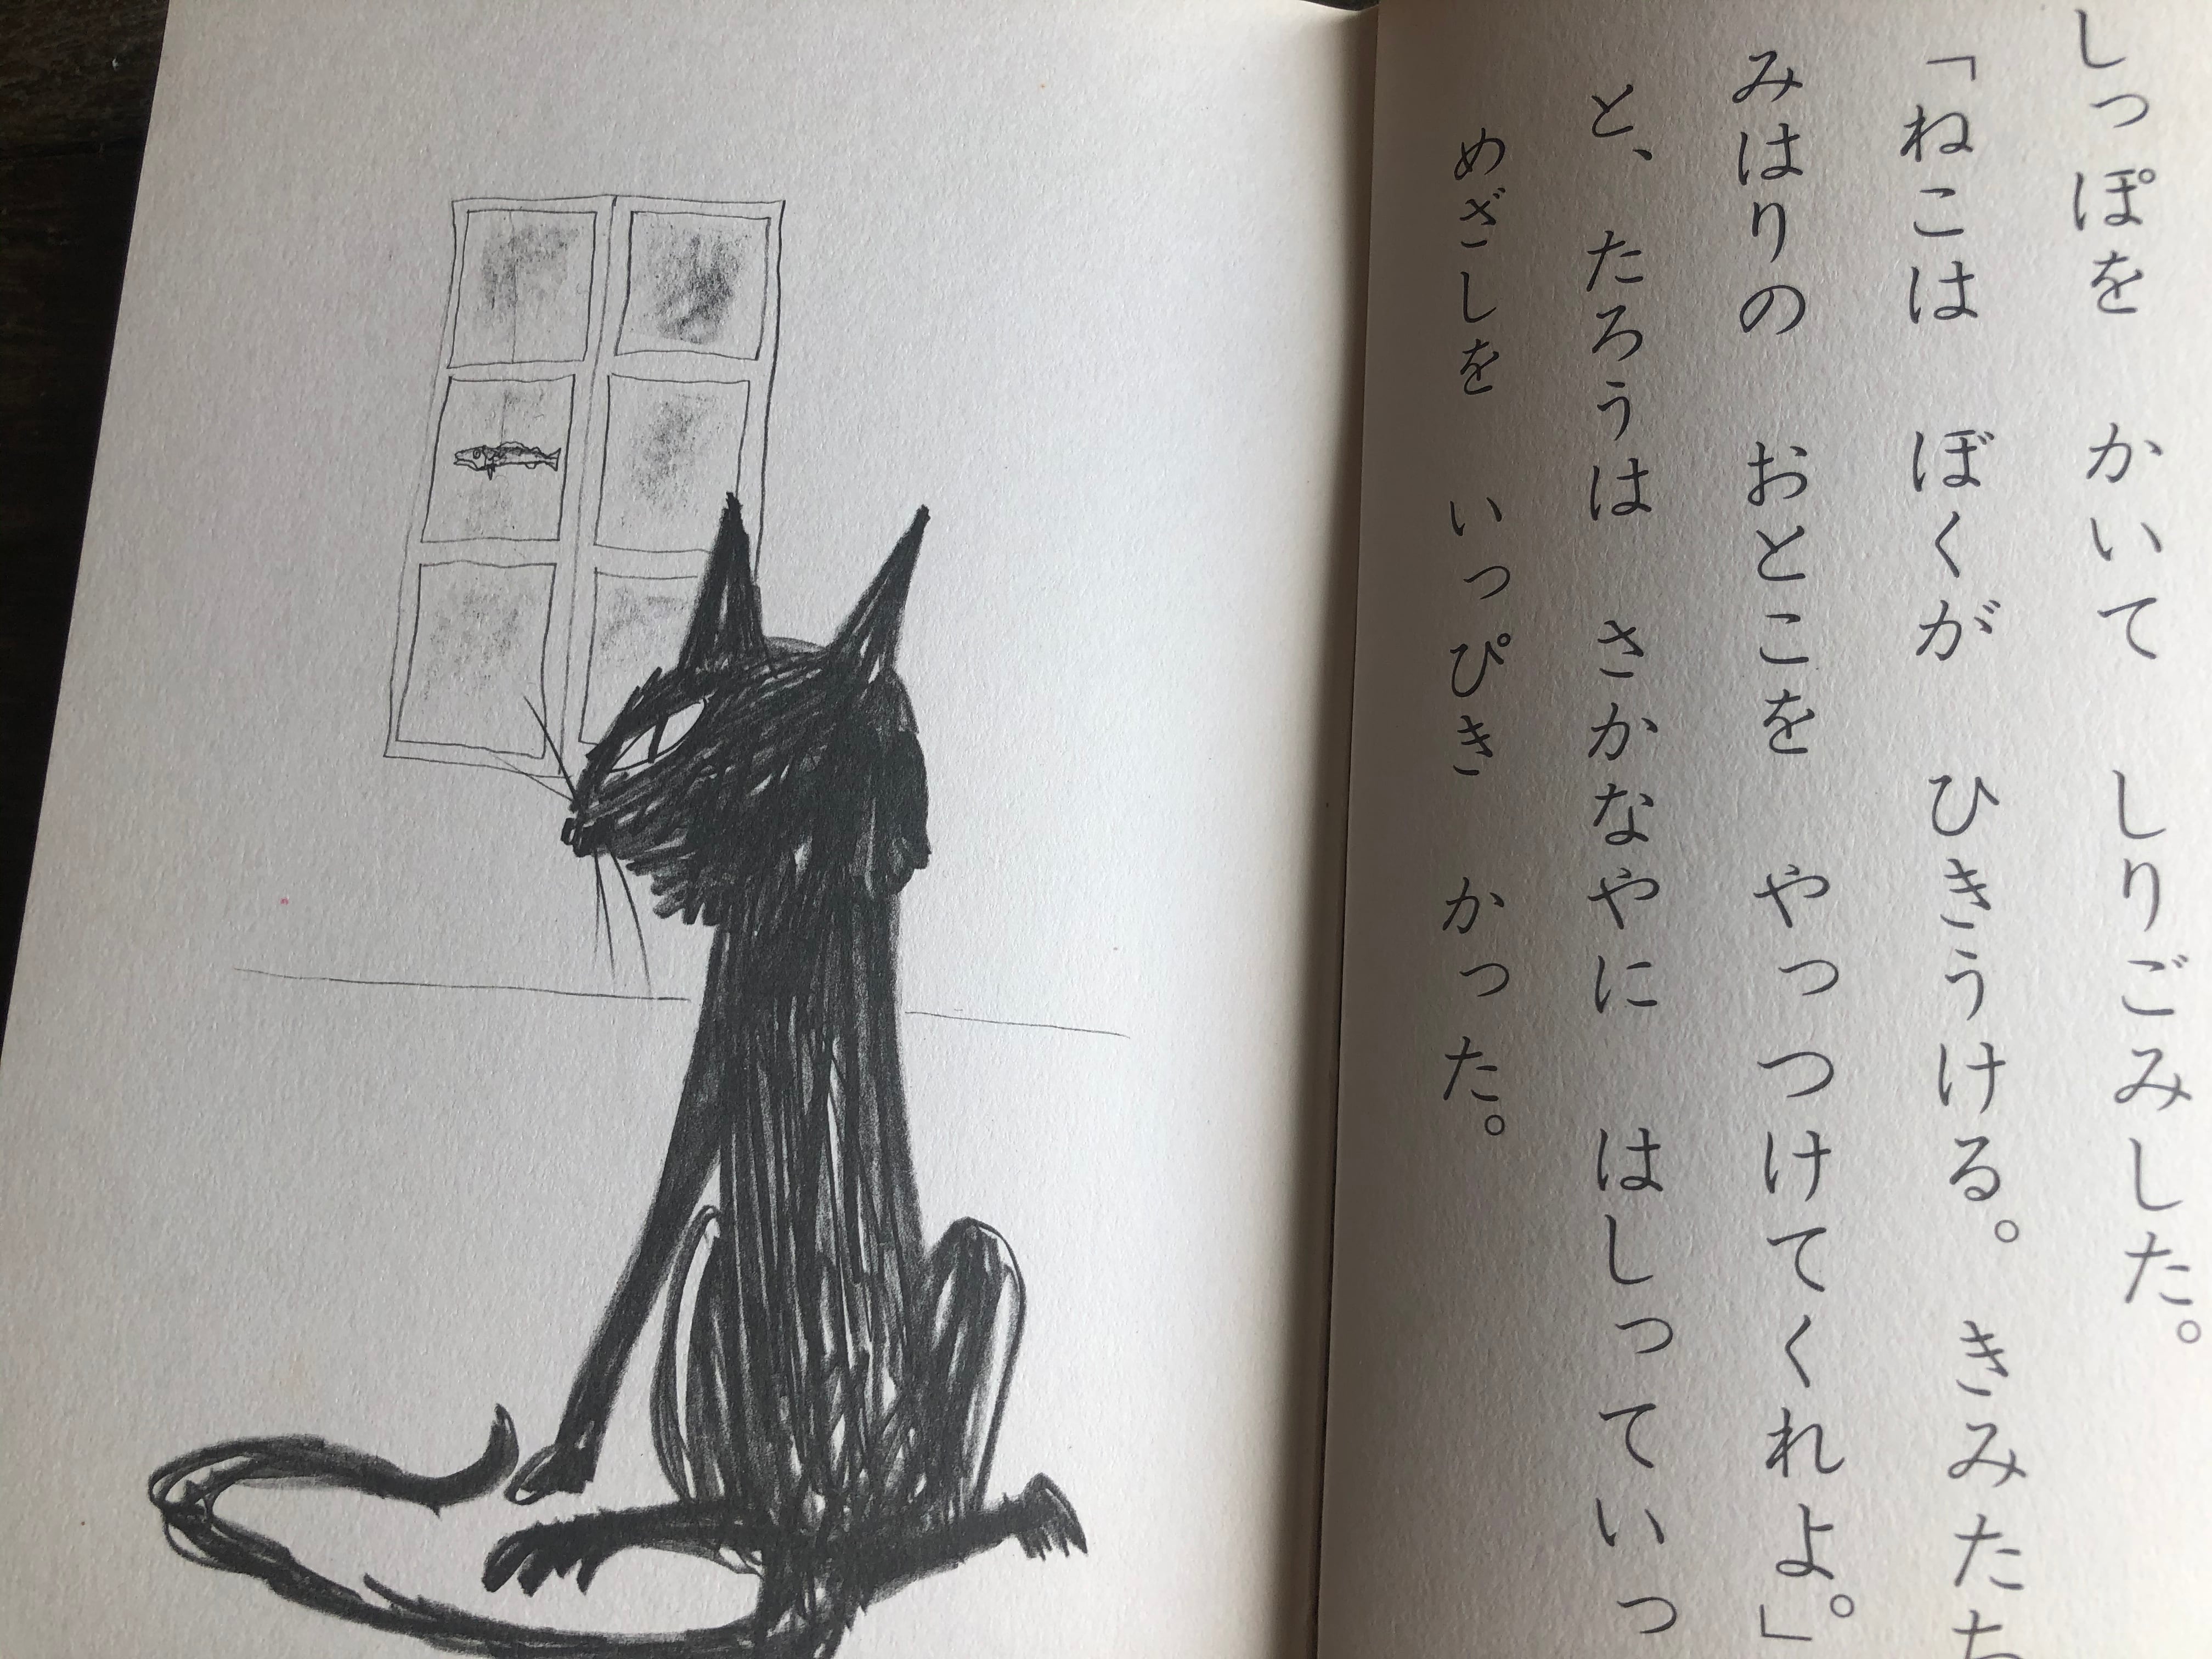 しっぽを かいて しりごみした。
「ねこは ぼくが ひきうける。きみたち
みはりの おとこを やっつけてくれよ。」
と、たろうは さかなやに はしっていっ
めざしを いっぴき かった。